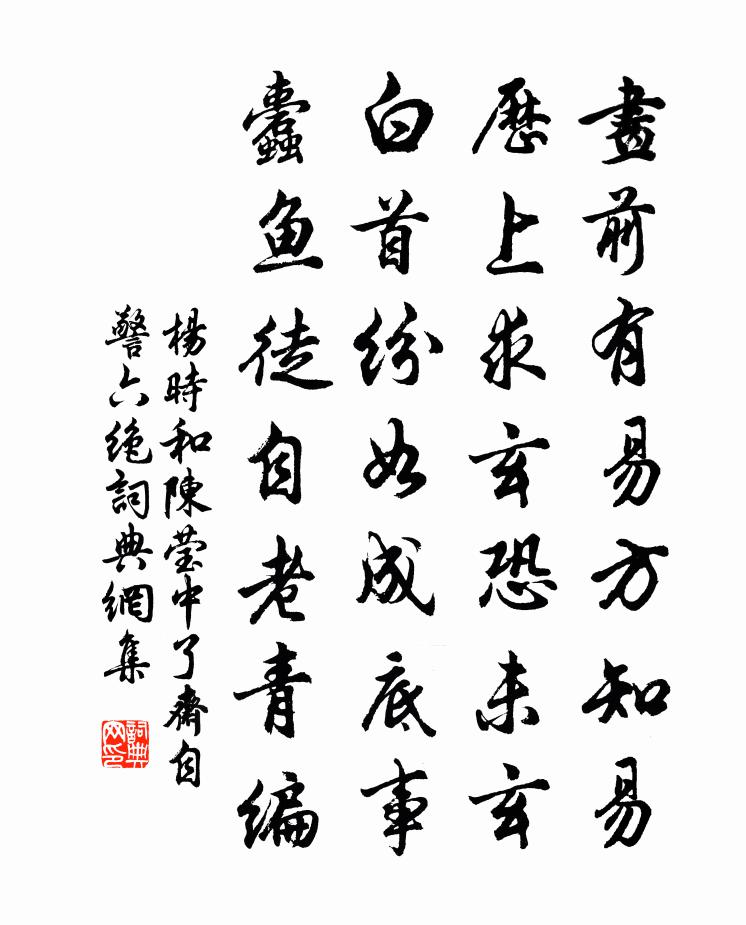 畫前有易方知易
歷上求玄恐未玄
白首紛如成底事
蠹魚徒自老青編
楊時和陳瑩中了齋自
警六絶詞典網集
詞典
网印